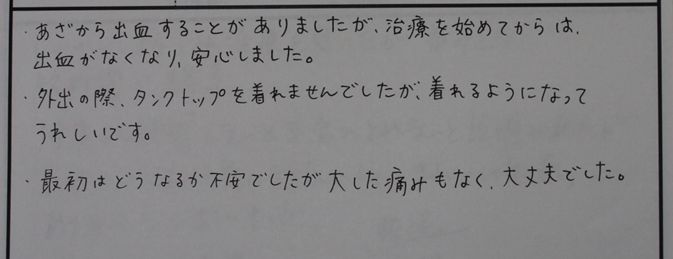 ・あざから出血することがありましたが、治療を始めてからは、
出血がなくなり、安心しました。
・外出の際、タンクトップを着れませんでしたが、着れるようになって
うれしいです。
・最初はどうなるか不安でしたが大した痛みもなく、大丈夫でした。